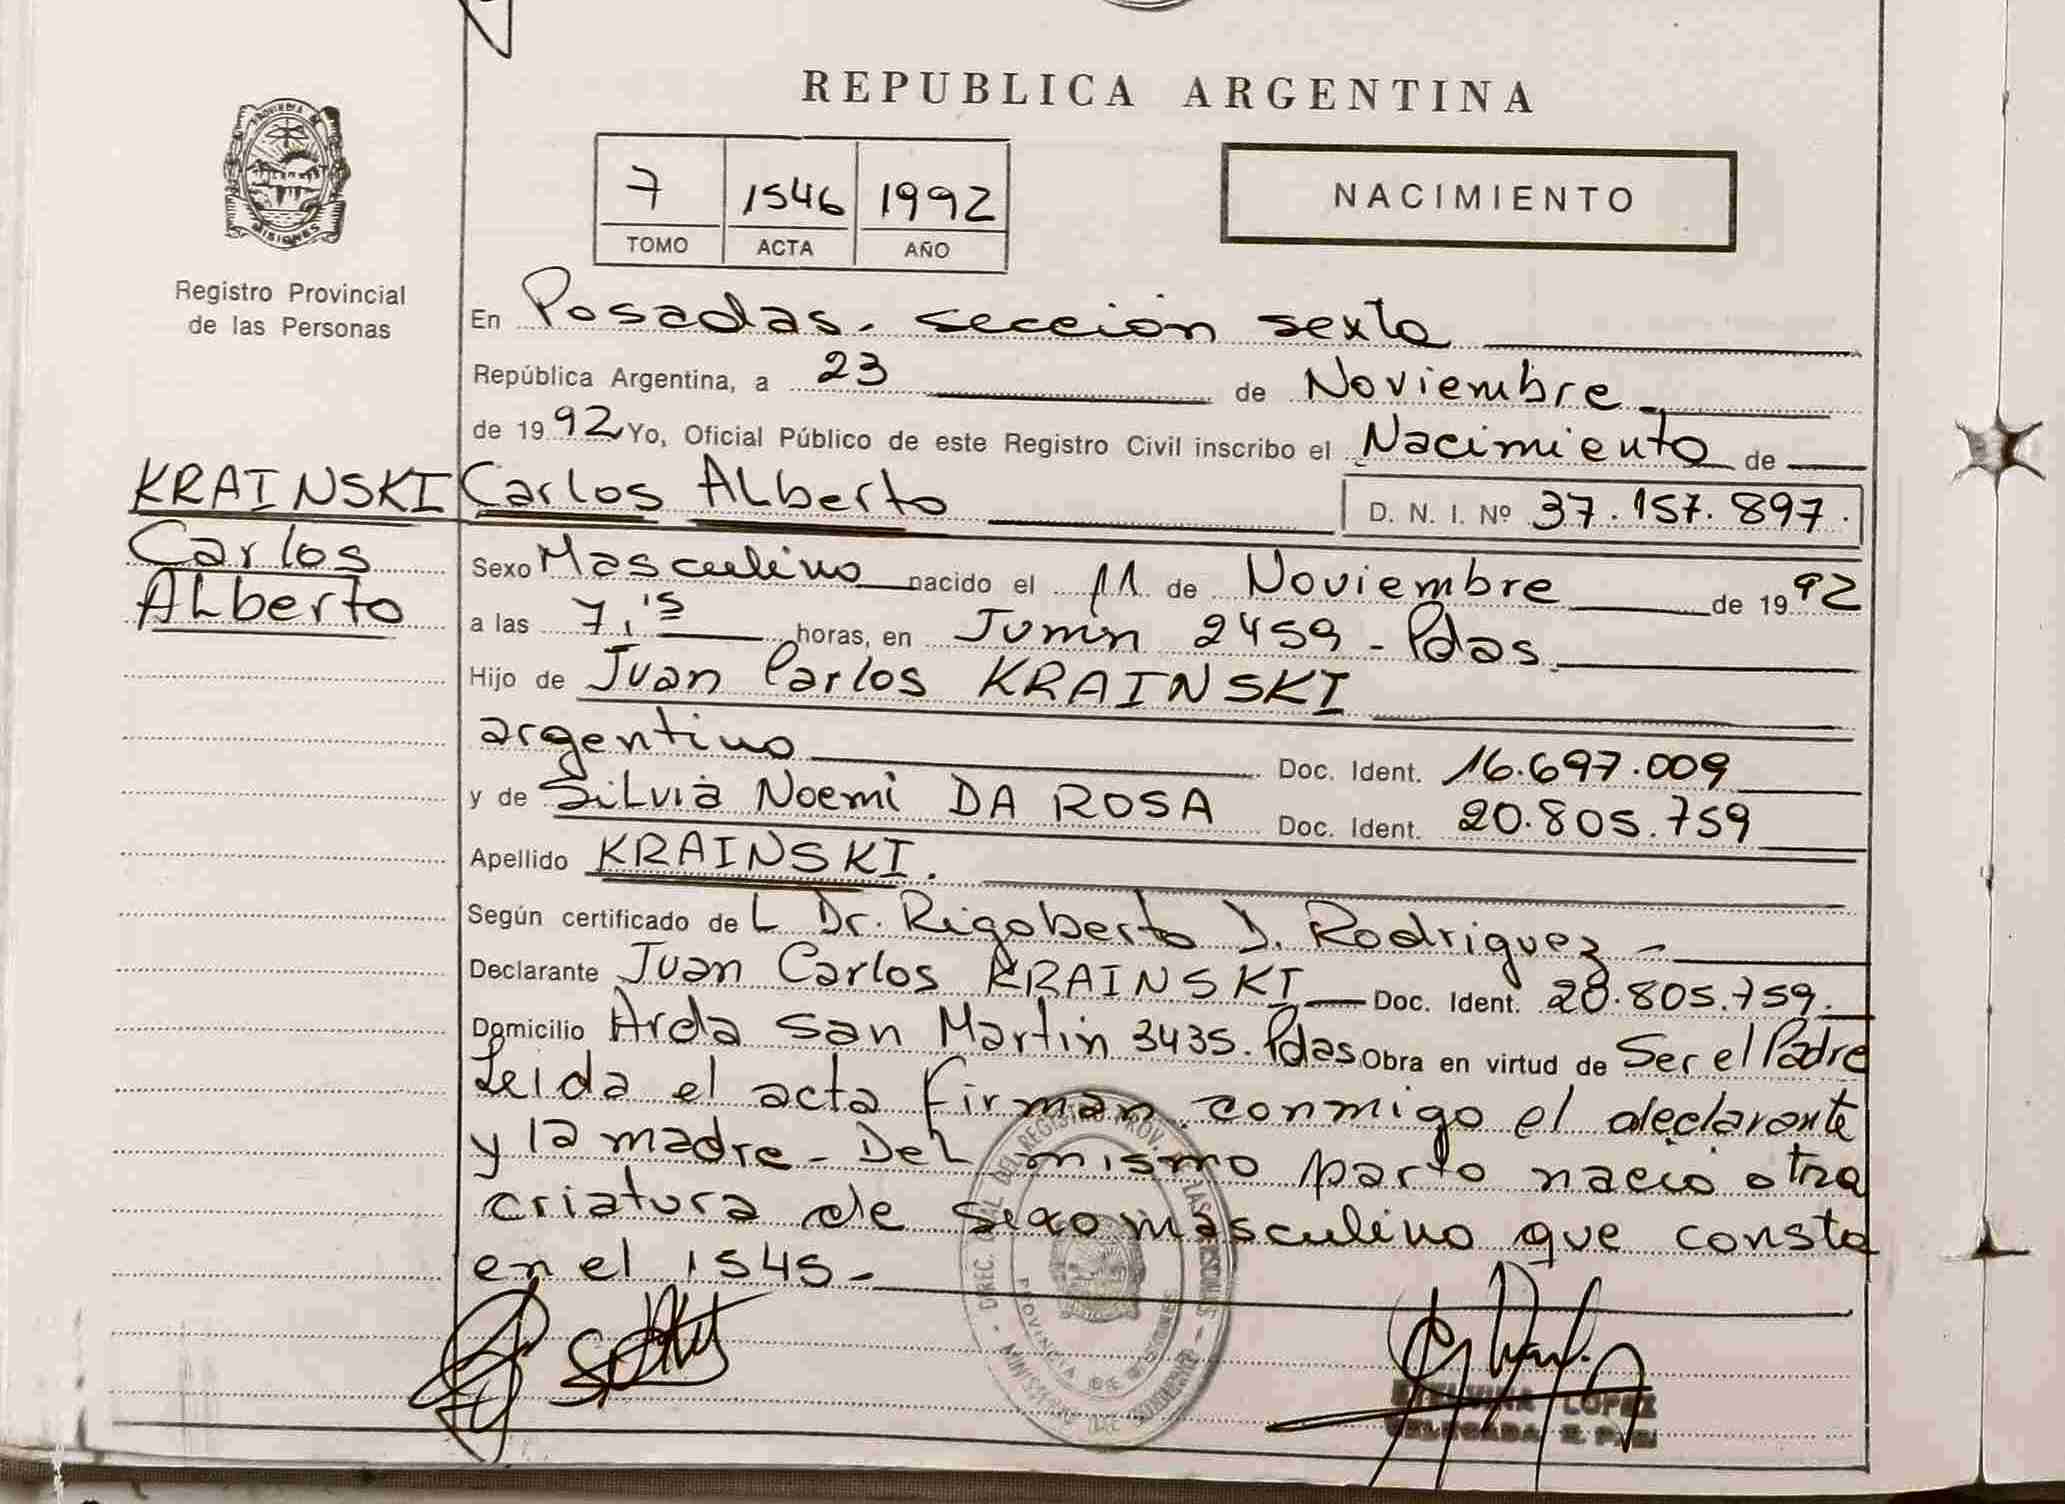 REPUBLICA ARGENTINA
7 1546 1992
TOMO ACTA AÑO
NACIMIENTO
MISIONES
Registro Provincial
de las Personas
En Posadas. sección sexta
República Argentina, a 23 de Noviembre
de 1992 Yo, Oficial Público de este Registro Civil inscribo el Nacimiento de
KRAINSKI
Carlos
ALberto
Carlos ALberto D. N. I. Nº 37.157.897.
Sexo Masculino nacido el 11 de Noviembre de 1992
a las 7,15 horas, en Junin 2459 - Pdas.
Hijo de Juan Carlos KRAINSKI
argentino Doc. Ident. 16.697.009
y de SiLvia Noemi DA ROSA Doc. Ident. 20.805.759
Apellido KRAINSKI.
Según certificado de L Dr. Rigoberto D. Rodriguez -
Declarante Juan Carlos KRAINSKI Doc. Ident. 20.805.759.
Domicilio Avda San Martin 3435. Pdas Obra en virtud de Ser el Padre
Leida el acta firman conmigo el declarante
y la madre - DeL mismo parto nació otra
criatura de sexo masculino que consta
en el 1545 -
DIREC. GRAL DEL REGISTRO PROV. DE LAS PERSONAS - MINISTERIO DE GOBIERNO
PROVINCIA DE MISIONES
LOPEZ
DELEGADA